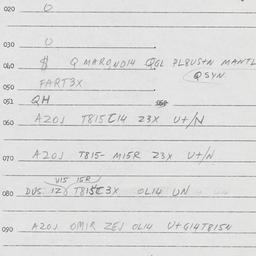 020 0
030 0
040 $ Q MARQND14 QGL PLBUS+N MANTL
QSYN
050 FART3X
051 QH
060 AZOJ T815 Z3X U+/N
070 AZOJ T815- M15R Z3X U+/N
V15 15R
080 OL14 UN
090 AZOJ OM1R ZEJ OL14 U+G14T815N